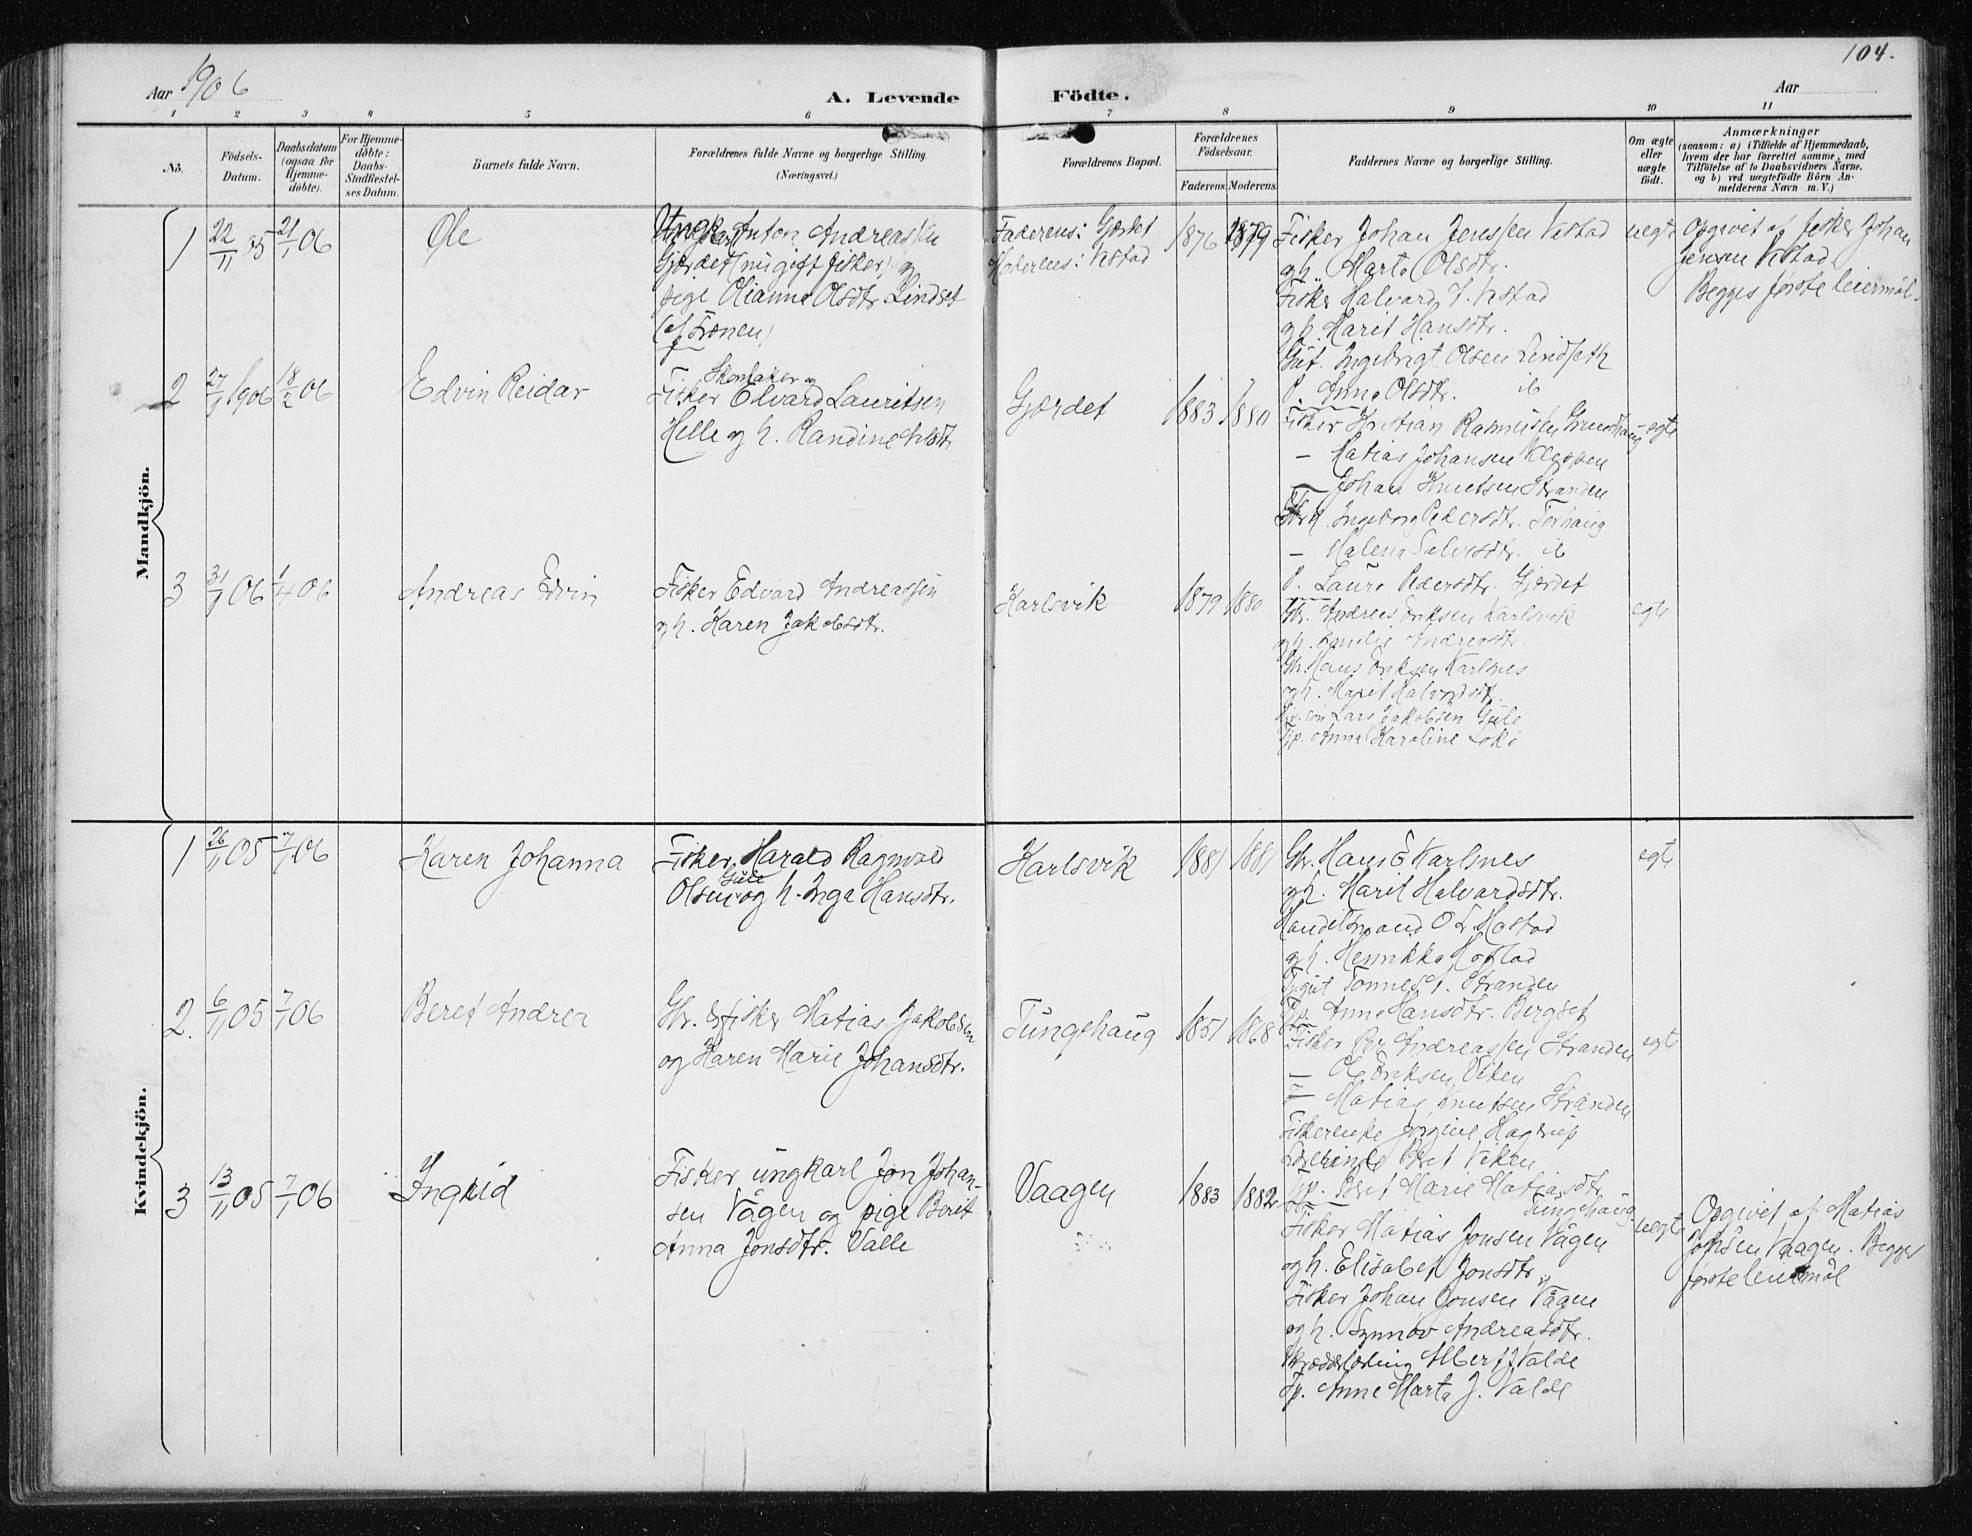 104.
Aar 1906
A. Levende Födte.
Aar
1 2 3 4 5 6 7 8 9 10 11
No.
Födsels-
Datum.
Daabsdatum
(ogsaa for
Hjemme-
döbte).
For Hjemme-
döbte:
Daabs-
Stadfæstel-
ses Datum.
Barnets fulde Navn.
Forældrenes fulde Navne og borgerlige Stilling.
(Næringsvei.)
Forældrenes Bopæl.
Forældrenes
Födselsaar.
Faderens. Moderens.
Faddernes Navne og borgerlige Stilling.
Om ægte
eller
uægte
födt.
Anmærkninger
(saasom: a) i Tilfælde af Hjemmedaab,
hvem der har forrettet samme, med
Tilföielse af to Daabsvidners Navne,
og b) ved uægtefödte Börn An-
melderens Navn m. V.)
Mandkjön.
1 22/11 05 21/1 06
Ole
Anton Andreassen
Gjærdet (nu gift fisker) og
pige Olianna Olsdtr. Lindset
(af Frænen)
Faderens: Gjærdet
Moderens: Vestad
1876 1879
Fisker Johan Jenssen Vestad
og h. Marta Olsdtr.
Fisker Halvard J. Vestad
og h. Marit Hansdtr.
Gut. Ingebrigt Olsen Lindseth
P. Anna Olsdtr. ib
uegte
Opgivet af fisker Johan
Jensen Vestad.
Begges første leiermål.
2 27/1 1906 18/2 06
Edvin Reidar
Skomaker og
Fisker Edvard Lauritsen
Helle og h. Randine Nilsdtr
Gjærdet
1883 1880
Fisker Kristian Rasmussen Grundhaug
— Matias Johansen Kleppen
— Johan Knutsen Stranden
Ingeborg Pedersdtr. Torhaug
— Malena ib
P. Laura Pedersdtr. Gjærdet
egte
3 31/1 06 1/4 06
Andreas Edvin
Fisker Edvard Andreassen
og h. Karen Jakobsdtr.
Karlsvik
1879 1880
Gbr. Andreas Eriksen Karlsvik
og h. Andreasdtr.
Gbr. Hans Eriksen Karlsnes
og h. Marit Halvordsdtr.
Lars Jakobsen Gule
Tjp. Anna Karoline
egte
Kvindekjön.
1 26/11 05 7/1 06
Karen Johanna
Fisker Harald Ragnvald
Gule
Olsen og h. Inga Hansdtr.
Karlsvik
1881 1881
Gbr. Hans E Karlsnes
og h. Marit Halvardsdtr.
Handelsmand O. L. Hostad
og h. Henrikka Hostad
Tjgut Tønnes J. Stranden
Tp. Anna Hansdtr. Bergset
egte
2. 6/11 05 7/1 06
Beret Andrea
Gbr. & fisker Matias Jakobsen
og Karen Marie Johansdtr.
Tungehaug
1851 1868
Fisker Per Andreassen Stranden
— Ole Eriksen Viken
— Matias Knutsen Stranden
Fiskerenke Jørgine Hagerup
Lærerinde Beret Viken
Tp. Beret Marie Matiasdtr.
Tungehaug
egte
3 13/11 05 7/1 06
Ingrid
Fisker ungkarl Jon Johan-
sen Vågen og pige Berit
Anna Jonsdtr. Valle
Vaagen
1883 1882
Fisker Matias Jonsen Vågen
og h. Elisabet Jonsdtr.
Fisker Johan Jonsen Vågen
og h. Synnøv Andreasdtr.
Skrædderlærling Albert J. Valde
Tp. Anne Marta J. Valde
uegte
Opgivet af Matias
Johsen Vaagen. Begges
første leiermål